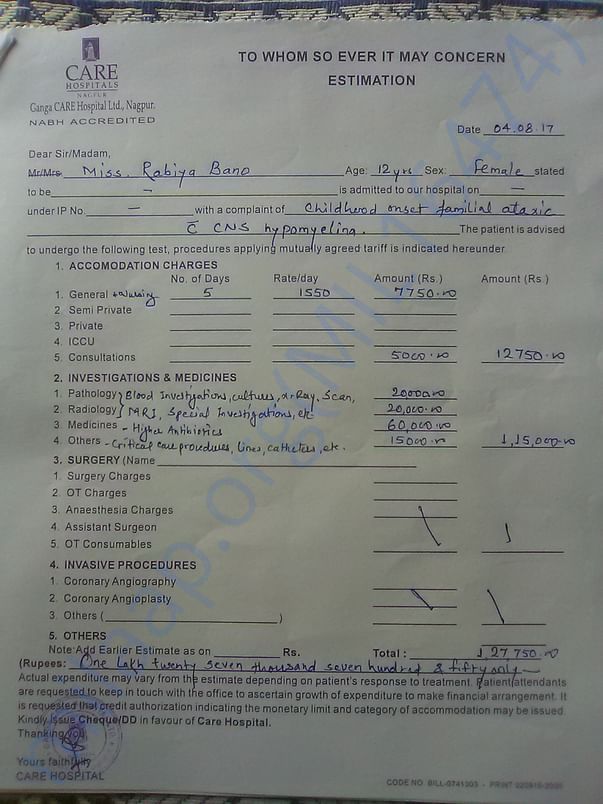 CARE
HOSPITALS
NAGPUR
Ganga CARE Hospital Ltd., Nagpur.
NABH ACCREDITED
TO WHOM SO EVER IT MAY CONCERN
ESTIMATION
Date 04.08.17
Dear Sir/Madam,
Mr/Mrs. Miss. Rabiya Bano Age: 12 yrs Sex: Female stated
to be — is admitted to our hospital on —
under IP No. — with a complaint of Childhood onset familial ataxic
c̄ CNS hypomyelina. The patient is advised
to undergo the following test, procedures applying mutually agreed tariff is indicated hereunder
1. ACCOMODATION CHARGES
No. of Days Rate/day Amount (Rs.) Amount (Rs.)
1. General + Nursing 5 1550 7750.00
2. Semi Private
3. Private
4. ICCU
5. Consultations 5000.00 12750.00
2. INVESTIGATIONS & MEDICINES
1. Pathology } Blood Investigations, cultures, x-Ray, Scan, 20000.00
2. Radiology } MRI, Special Investigations, etc 20,000.00
3. Medicines - Higher Antibiotics 60,000.00
4. Others - Critical care procedures, lines, catheters, etc. 15000.00 1,15,000.00
3. SURGERY (Name
1. Surgery Charges
2. OT Charges
3. Anaesthesia Charges
4. Assistant Surgeon
5. OT Consumables
4. INVASIVE PROCEDURES
1. Coronary Angiography
2. Coronary Angioplasty
3. Others ( )
5. OTHERS
Note: Add Earlier Estimate as on Rs. Total : 1,27,750.00
(Rupees: One Lakh twenty seven thousand seven hundred & fifty only —
Actual expenditure may vary from the estimate depending on patient's response to treatment. Patient attendants
are requested to keep in touch with the office to ascertain growth of expenditure to make financial arrangement. It
is requested that credit authorization indicating the monetary limit and category of accommodation may be issued.
Kindly Issue Cheque/DD in favour of Care Hospital.
Thanking you
Yours faithfully
CARE HOSPITAL
CODE NO. BILL-0741303 - PRINT